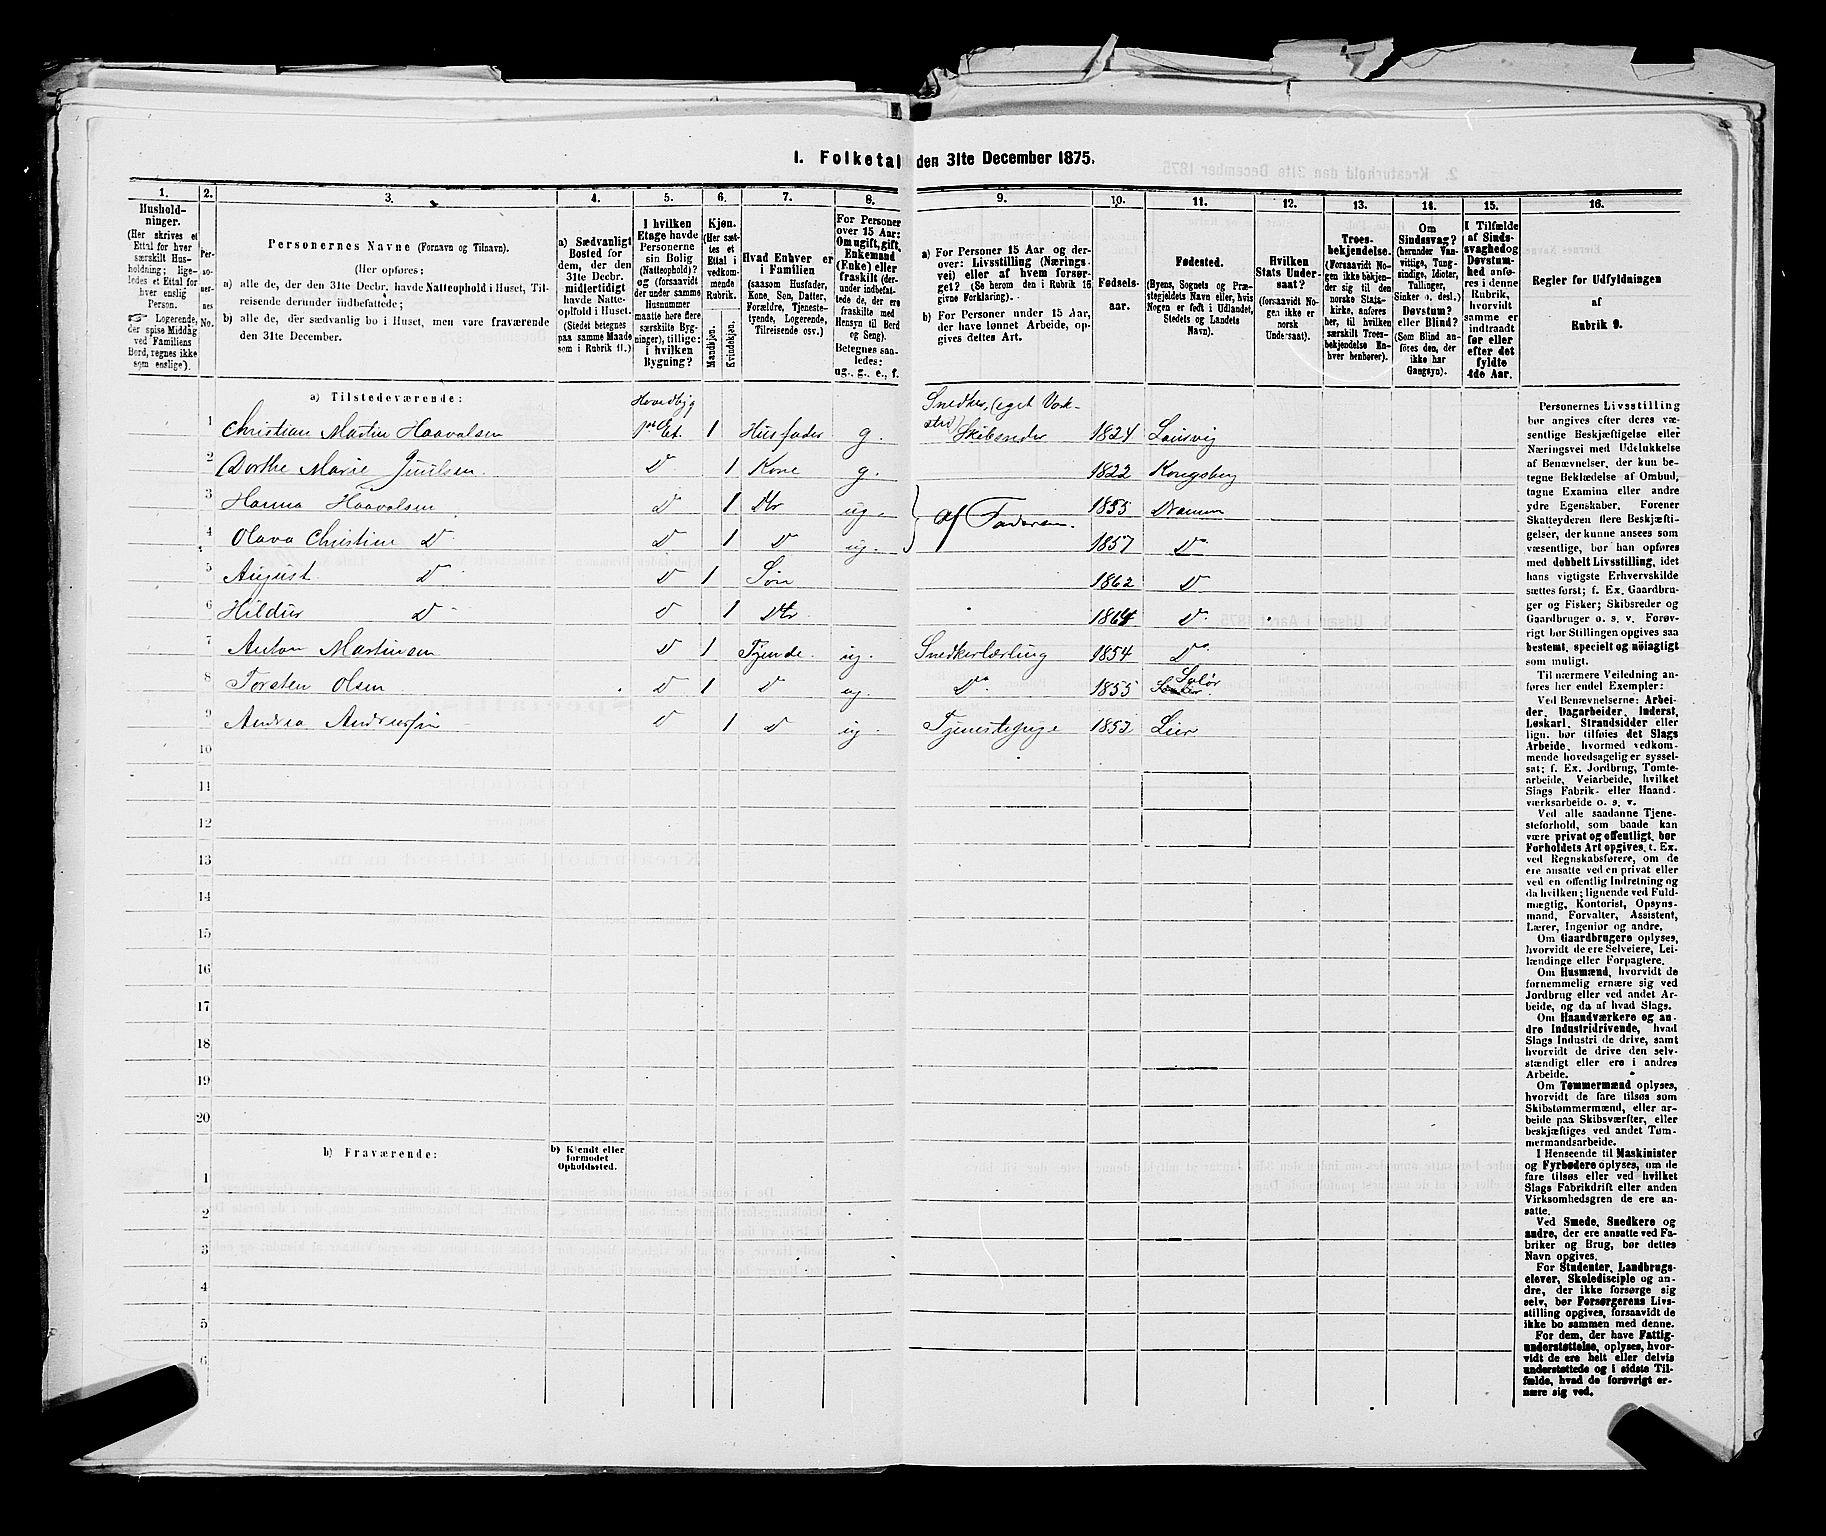 1. Folketal den 31te December 1875.
1.
2.
3.
4.
5.
6.
7.
8.
9.
10.
11.
12.
13.
14.
15.
16.
Hushold-
ninger.
(Her skrives et
Ettal for hver
særskilt Hus-
holdning; lige-
ledes et Ettal for
hver enslig
Person.
☞ Logerende,
der spise Middag
ved Familiens
Bord, regnes ikke
som enslige).
Per-
so-
ner-
nes
No.
Personernes Navne (Fornavn og Tilnavn).
(Her opføres:
a) alle de, der den 31te Decbr. havde Natteophold i Huset, Til-
reisende derunder indbefattede;
b) alle de, der sædvanlig bo i Huset, men vare fraværende
den 31te December.
a) Sædvanligt
Bosted for
dem, der den
31te Decbr.
midlertidigt
havde Natte-
ophold i Huset.
(Stedet betegnes
paa samme Maade
som i Rubrik 11.)
I hvilken
Etage havde
Personerne
sin Bolig
(Natteophold)?
og (forsaavidt
der under samme
Husnummer
maatte høre flere
særskilte Byg-
ninger), tillige:
i hvilken
Bygning?
Kjøn.
(Her sæt-
tes et
Ettal i
vedkom-
mende
Rubrik.
Mandkjøn.
Kvindekjøn.
Hvad Enhver er
i Familien
(saasom Husfader,
Kone, Søn, Datter,
Forældre, Tjeneste-
tyende, Logerende,
Tilreisende osv.)
For Personer
over 15 Aar:
Om ugift, gift,
Enkemand
(Enke) eller
fraskilt (der-
under indbefat-
tede de, der ere
fraskilte med
Hensyn til Bord
og Seng).
Betegnes saa-
ledes:
ug., g., e., f.
a) For Personer 15 Aar og der-
over: Livsstilling (Nærings-
vei) eller af hvem forsør-
get? (Se herom den i Rubrik 16
givne Forklaring).
b) For Personer under 15 Aar,
der have lønnet Arbeide, op-
gives dettes Art.
Fødsels-
aar.
Fødested.
(Byens, Sognets og Præ-
stegjeldets Navn eller, hvis
Nogen er født i Udlandet,
Stedets og Landets
Navn).
Hvilken
Stats Under-
saat?
(forsaavidt No-
gen ikke er
norsk
Undersaat).
Troes-
bekjendelse.
(Forsaavidt No-
gen ikke bekjen-
der sig til den
norske Stats-
kirke, anføres
her, til hvilken
særskilt Troes-
bekjendelse En-
hver henhører).
Om
Sindssvag?
(herunder Van-
vittige, Tung-
sindige, Idioter,
Tullinger,
Sinker o. desl.)
Døvstum?
eller Blind?
(Som Blind an-
føres den, der
ikke har
Gangsyn).
I Tilfælde
af Sinds-
svaghed og
Døvstum-
hed anfø-
res i denne
Rubrik,
hvorvidt
samme er
indtraadt
før eller
efter det
fyldte
4de Aar.
Regler for Udfyldningen
af
Rubrik 9.
a) Tilstedeværende:
Hovedbyg
Snedker, (eget Værk-
sted)
1 Christian Martin Haavalsen 1ste Et. 1 Husfader g. Skibsreder 1824 Laurvig
2 Dorthe Marie Juulsen D 1 Kone g. 1822 Kongsberg
3 Hanna Haavalsen D 1 Dtr ug. af Faderen 1855 Drammen
4 Olava Christine D D 1 D ug. 1857 Do
5 August D D 1 Søn 1862 D
6 Hildur D D 1 Dtr 1864 D
7 Anton Martinsen D 1 Tjende ug. Snedkerlærling 1854 Do
8 Torsten Olsen D 1 D ug. Do 1855 Solør
9 Andrea D 1 D ug. Tjenestepige 1852 Lier
10
11
12
13
14
15
16
17
18
19
20
b) Fraværende:
b) Kjendt eller
formodet
Opholdssted.
1
2
3
4
5
6
Personernes Livsstilling
bør angives efter deres væ-
sentlige Beskjæftigelse eller
Næringsvei med Udelukkelse
af Benævnelser, der kun be-
tegne Beklædelse af Ombud,
tagne Examina eller andre
ydre Egenskaber. Forener
Skatteyderen flere Beskjæfti-
gelser, der kunne ansees som
væsentlige, bør han opføres
med dobbelt Livsstilling, idet
hans vigtigste Erhvervskilde
sættes først; f. Ex. Gaardbru-
ger og Fisker; Skibsreder og
Gaardbruger o. s. v. Forøv-
rigt bør Stillingen opgives saa
bestemt, specielt og nöiagtigt
som muligt.
Til nærmere Veiledning an-
føres her endel Exempler:
Ved Benævnelserne: Arbei-
der, Dagarbeider, Inderst,
Løskarl, Strandsidder eller
lign. bør tilføies det Slags
Arbeide, hvormed vedkom-
mende hovedsagelig er syssel-
sat; f. Ex. Jordbrug, Tomte-
arbeide, Veiarbeide, hvilket
Slags Fabrik- eller Haand-
værksarbeide o. s. v.
Ved alle saadanne Tjene-
steforhold, som baade kan
være privat og offentligt, bør
Forholdets Art opgives, t. Ex.
ved Regnskabsførere, om de
ere ansatte ved en privat eller
ved en offentlig Indretning og
da hvilken; lignende ved Fuld-
mægtig, Kontorist, Opsyns-
mand, Forvalter, Assistent,
Lærer, Ingeniør og andre.
Om Gaardbrugere oplyses,
hvorvidt de ere Selveiere, Lei-
lændinge eller Forpagtere.
Om Husmænd, hvorvidt de
fornemmelig ernære sig ved
Jordbrug eller ved andet Ar-
beide, og da af hvad Slags.
Om Haandværkere og an-
dre Industridrivende, hvad
Slags Industri de drive, samt
hvorvidt de drive den selv-
stændigt eller ere i andres
Arbeide.
Om Tømmermænd oplyses,
hvorvidt de fare tilsøs som
Skibstømmermænd, eller ar-
beide paa Skibsværfter, eller
beskjæftiges ved andet Tøm-
mermandsarbeide.
I Henseende til Maskinister
og Fyrbødere oplyses, om de
fare tilsøs eller ved hvilket
Slags Fabrikdrift eller anden
Virksomhedsgren de ere an-
satte.
Ved Smede, Snedkere og
andre, der ere ansatte ved Fa-
briker og Brug, bør dettes
Navn opgives.
For Studenter, Landbrugs-
elever, Skoledisciple og an-
dre, der ikke forsørge sig
selv, bør Forsørgerens Livs-
stilling opgives, forsaavidt de
ikke bo sammen med denne.
For dem, der have Fattig-
understøttelse, oplyses, hvor-
vidt de ere helt eller delvis
understøttede og i sidste Til-
fælde, hvad de forøvrigt er-
nære sig ved.